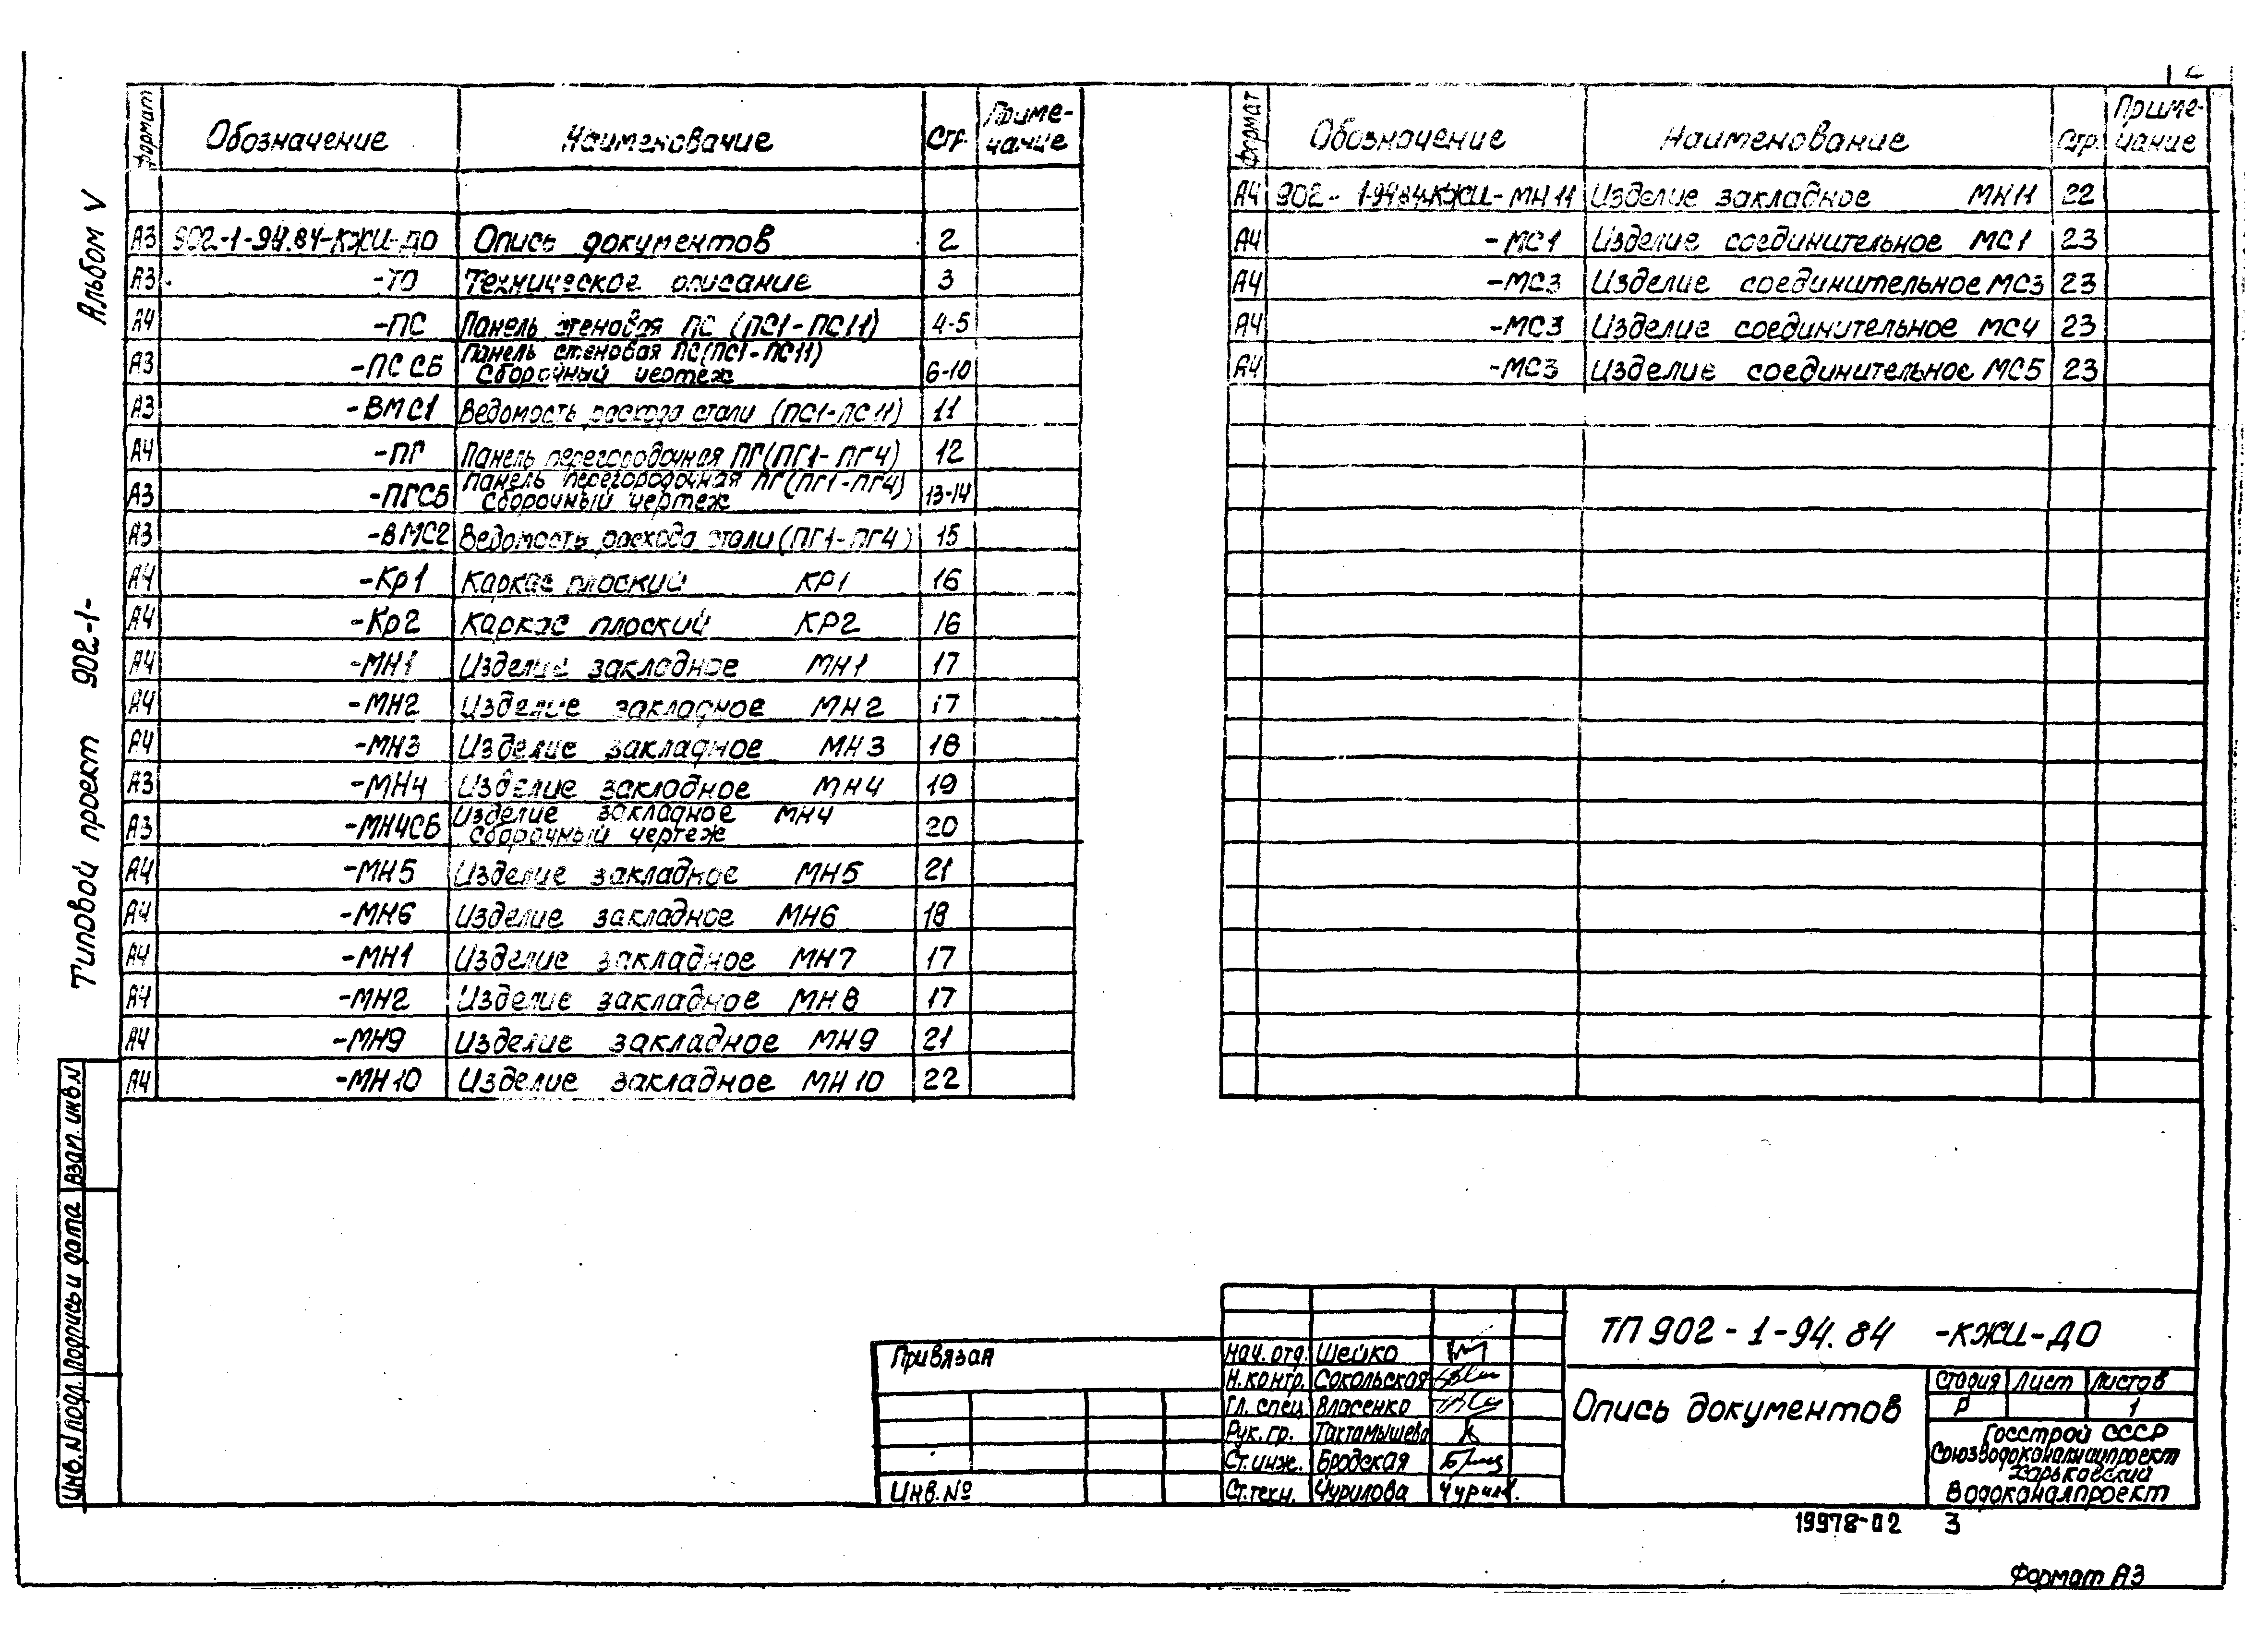 Альбом V
Типовой проект 902-1-
Формат Обозначение Наименование Стр. Приме-
чание
А3 902-1-94.84-КЖИ-ДО Опись документов 2
А3 -ТО Техническое описание 3
А4 -ПС Панель стеновая ПС (ПС1-ПС11) 4-5
А3 -ПС СБ Панель стеновая ПС(ПС1-ПС11)
Сборочный чертеж 6-10
А3 -ВМС1 Ведомость расхода стали (ПС1-ПС11) 11
А4 -ПГ Панель перегородочная ПГ(ПГ1-ПГ4) 12
А3 -ПГСБ Панель перегородочная ПГ(ПГ1-ПГ4)
Сборочный чертеж 13-14
А3 -ВМС2 Ведомость расхода стали (ПГ1-ПГ4) 15
А4 -Кр1 Каркас плоский КР1 16
А4 -Кр2 Каркас плоский КР2 16
А4 -МН1 Изделие закладное МН1 17
А4 -МН2 Изделие закладное МН2 17
А4 -МН3 Изделие закладное МН3 18
А3 -МН4 Изделие закладное МН4 19
А3 -МН4СБ Изделие закладное МН4
Сборочный чертеж 20
А4 -МН5 Изделие закладное МН5 21
А4 -МН6 Изделие закладное МН6 18
А4 -МН1 Изделие закладное МН7 17
А4 -МН2 Изделие закладное МН8 17
А4 -МН9 Изделие закладное МН9 21
А4 -МН10 Изделие закладное МН10 22
Формат Обозначение Наименование Стр. Приме-
чание
А4 902-1-94.84.КЖИ-МН11 Изделие закладное МН11 22
А4 -МС1 Изделие соединительное МС1 23
А4 -МС3 Изделие соединительное МС3 23
А4 -МС3 Изделие соединительное МС4 23
А4 -МС3 Изделие соединительное МС5 23
Взап. инв.N
Подпись и дата
Инв.N подл.
Привязан
Инв.№
Нач. отд. Шейко
Н. контр. Сокольская
Гл. спец. Власенко
Рук. гр. Тахтамышева
Ст. инж. Бродская
Ст. техн. Чурилова
ТП 902-1-94.84 -КЖИ-ДО
Опись документов
Стадия Лист Листов
Р 1
Госстрой СССР
Союзводоканалниипроект
Харьковский
Водоканалпроект
19978-02 3
Формат А3